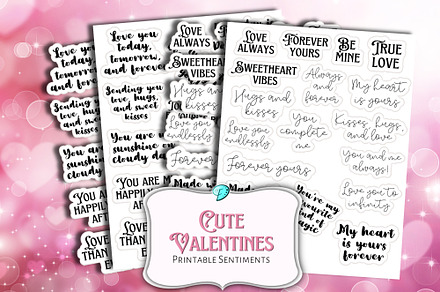 Love you
today,
tomorrow,
and forever
Sending you
love, hugs,
and sweet
kisses
You are
sunshine
cloudy
Love you
today,
tomorrow,
and forever
Sending you
love, hugs,
and sweet
kisses
You are
sunshine on
cloudy
You are m
Happily
aft
Love
than
Love
always
Sweetheart
vibes
Hugs and
kisses
Love you
endlessly
Forever
Made
Love
always
Forever
yours
Be
mine
True
love
Sweetheart
vibes
Always
and
forever
My heart
is yours
Hugs and
kisses
You
complete
me
Kisses, hugs,
and love
Love you
endlessly
You and me
always!
Forever yours
Love you to
infinity
You're my
favourite
kind of
magic
My heart
is yours
forever
Cute
Valentines
Printable Sentiments